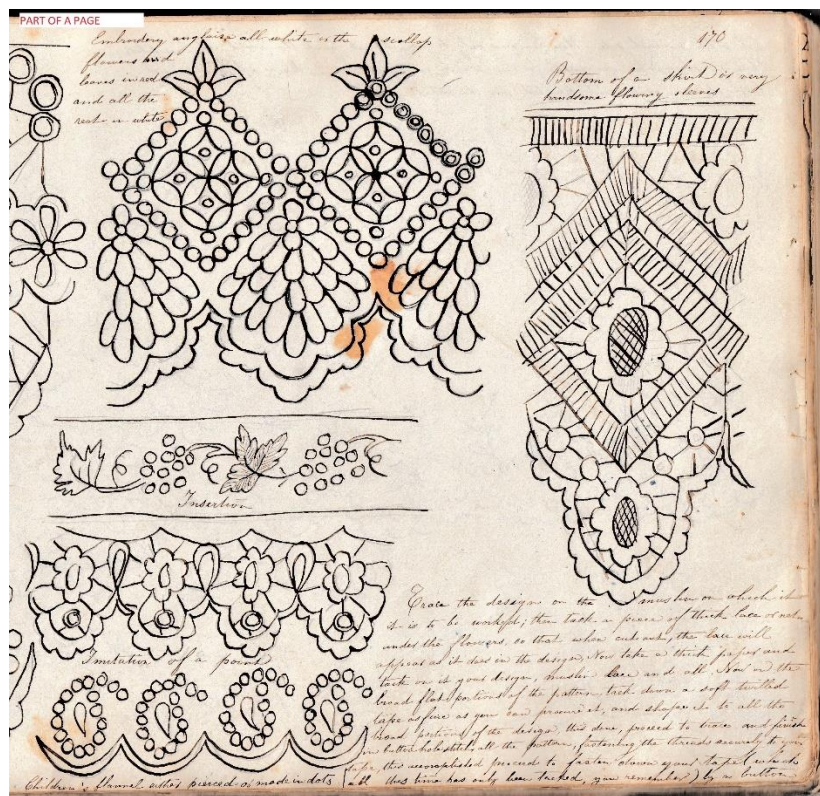 PART OF A PAGE
170
Embroidery anglaise all white or the scollop
flowers and
leaves in red
and all the
rest in white
Bottom of a skirt or very
handsome flowing sleeves
Insertion
Imitation of a point
Trace the design on the muslin on which
it is to be worked; then tack a piece of thick lace or net
under the flowers, so that when cut out, the lace will
appear as it does in the design. Now take a thick paper and
tack on it your design, muslin lace and all. Now on the
broad flat portions of the pattern, tack down a soft twilled
tape as fine as you can procure it, and shape it to all the
broad portions of the design, this done, proceed to trace and finish
in button hole stitch all the pattern, fastening the threads securely to your
tape this accomplished proceed to fasten down your tape (which
all this time has only been tacked, you remember) by a button
Children's flannel either pierced or made in dots